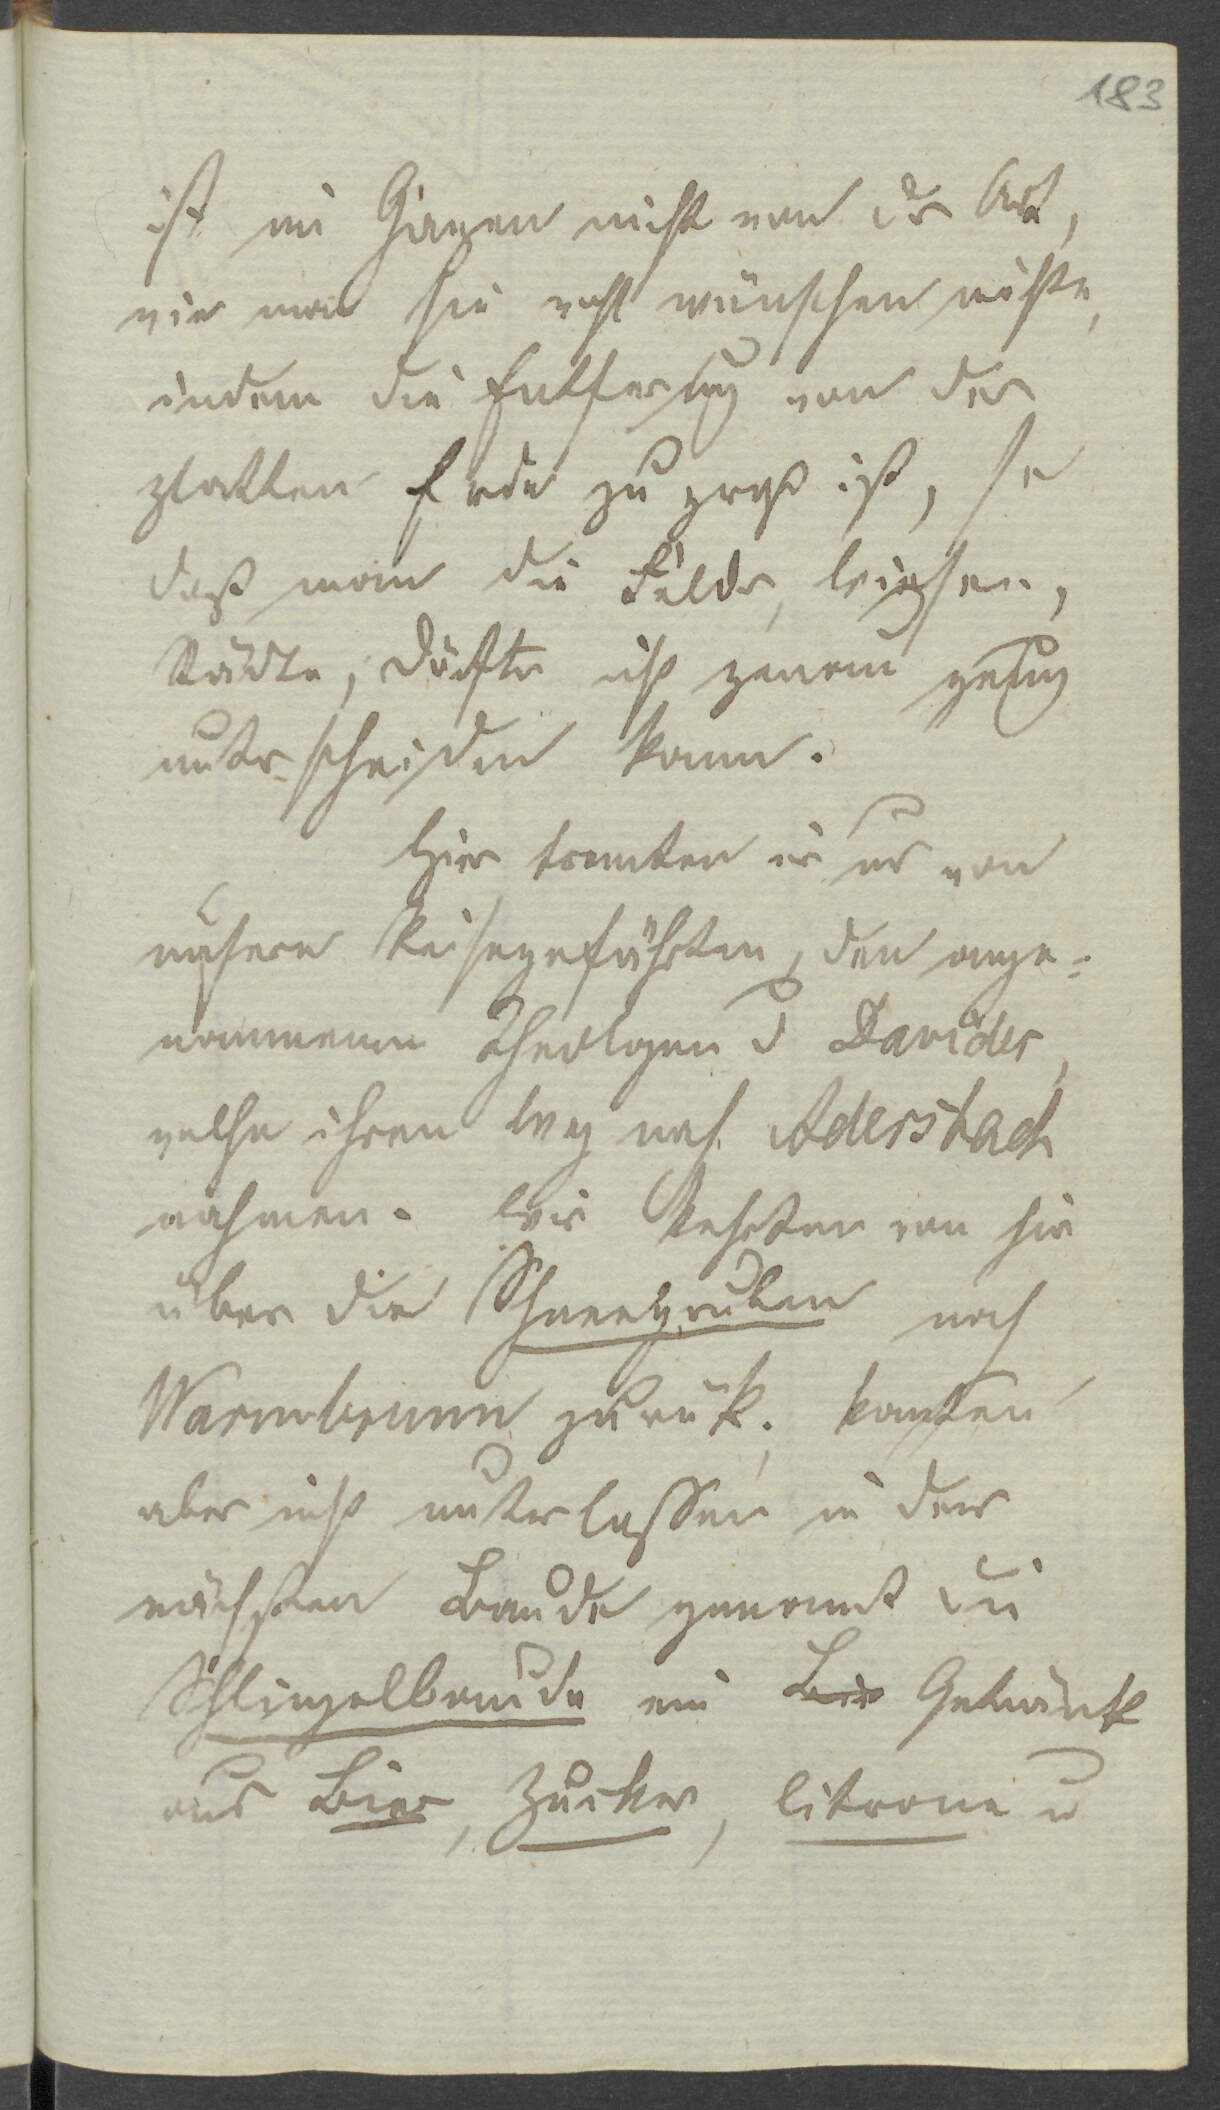 183
ist im Ganzen nicht von der Art,
wie man sie wohl wünschen müßte,
indem die Entfernung von der
platten Erde zu groß ist, so
daß man die Felder, Wiesen,
Städte, Dörfer nicht genau genug
unterscheiden kann.
Hier trennten wir uns von
unsern Reisegefährten, den ange-
nommenen Theologen u Davider,
welche ihren Weg nach Adersbach
nahmen. Wir kehrten von hier
über die Schneegruben nach
Warmbrunn zurük, konnten
aber nicht unterlassen in der
nächsten Baude genannt die
Schlingelbaude ein Bier Getränk
aus Bier, Zucker, Citrone u